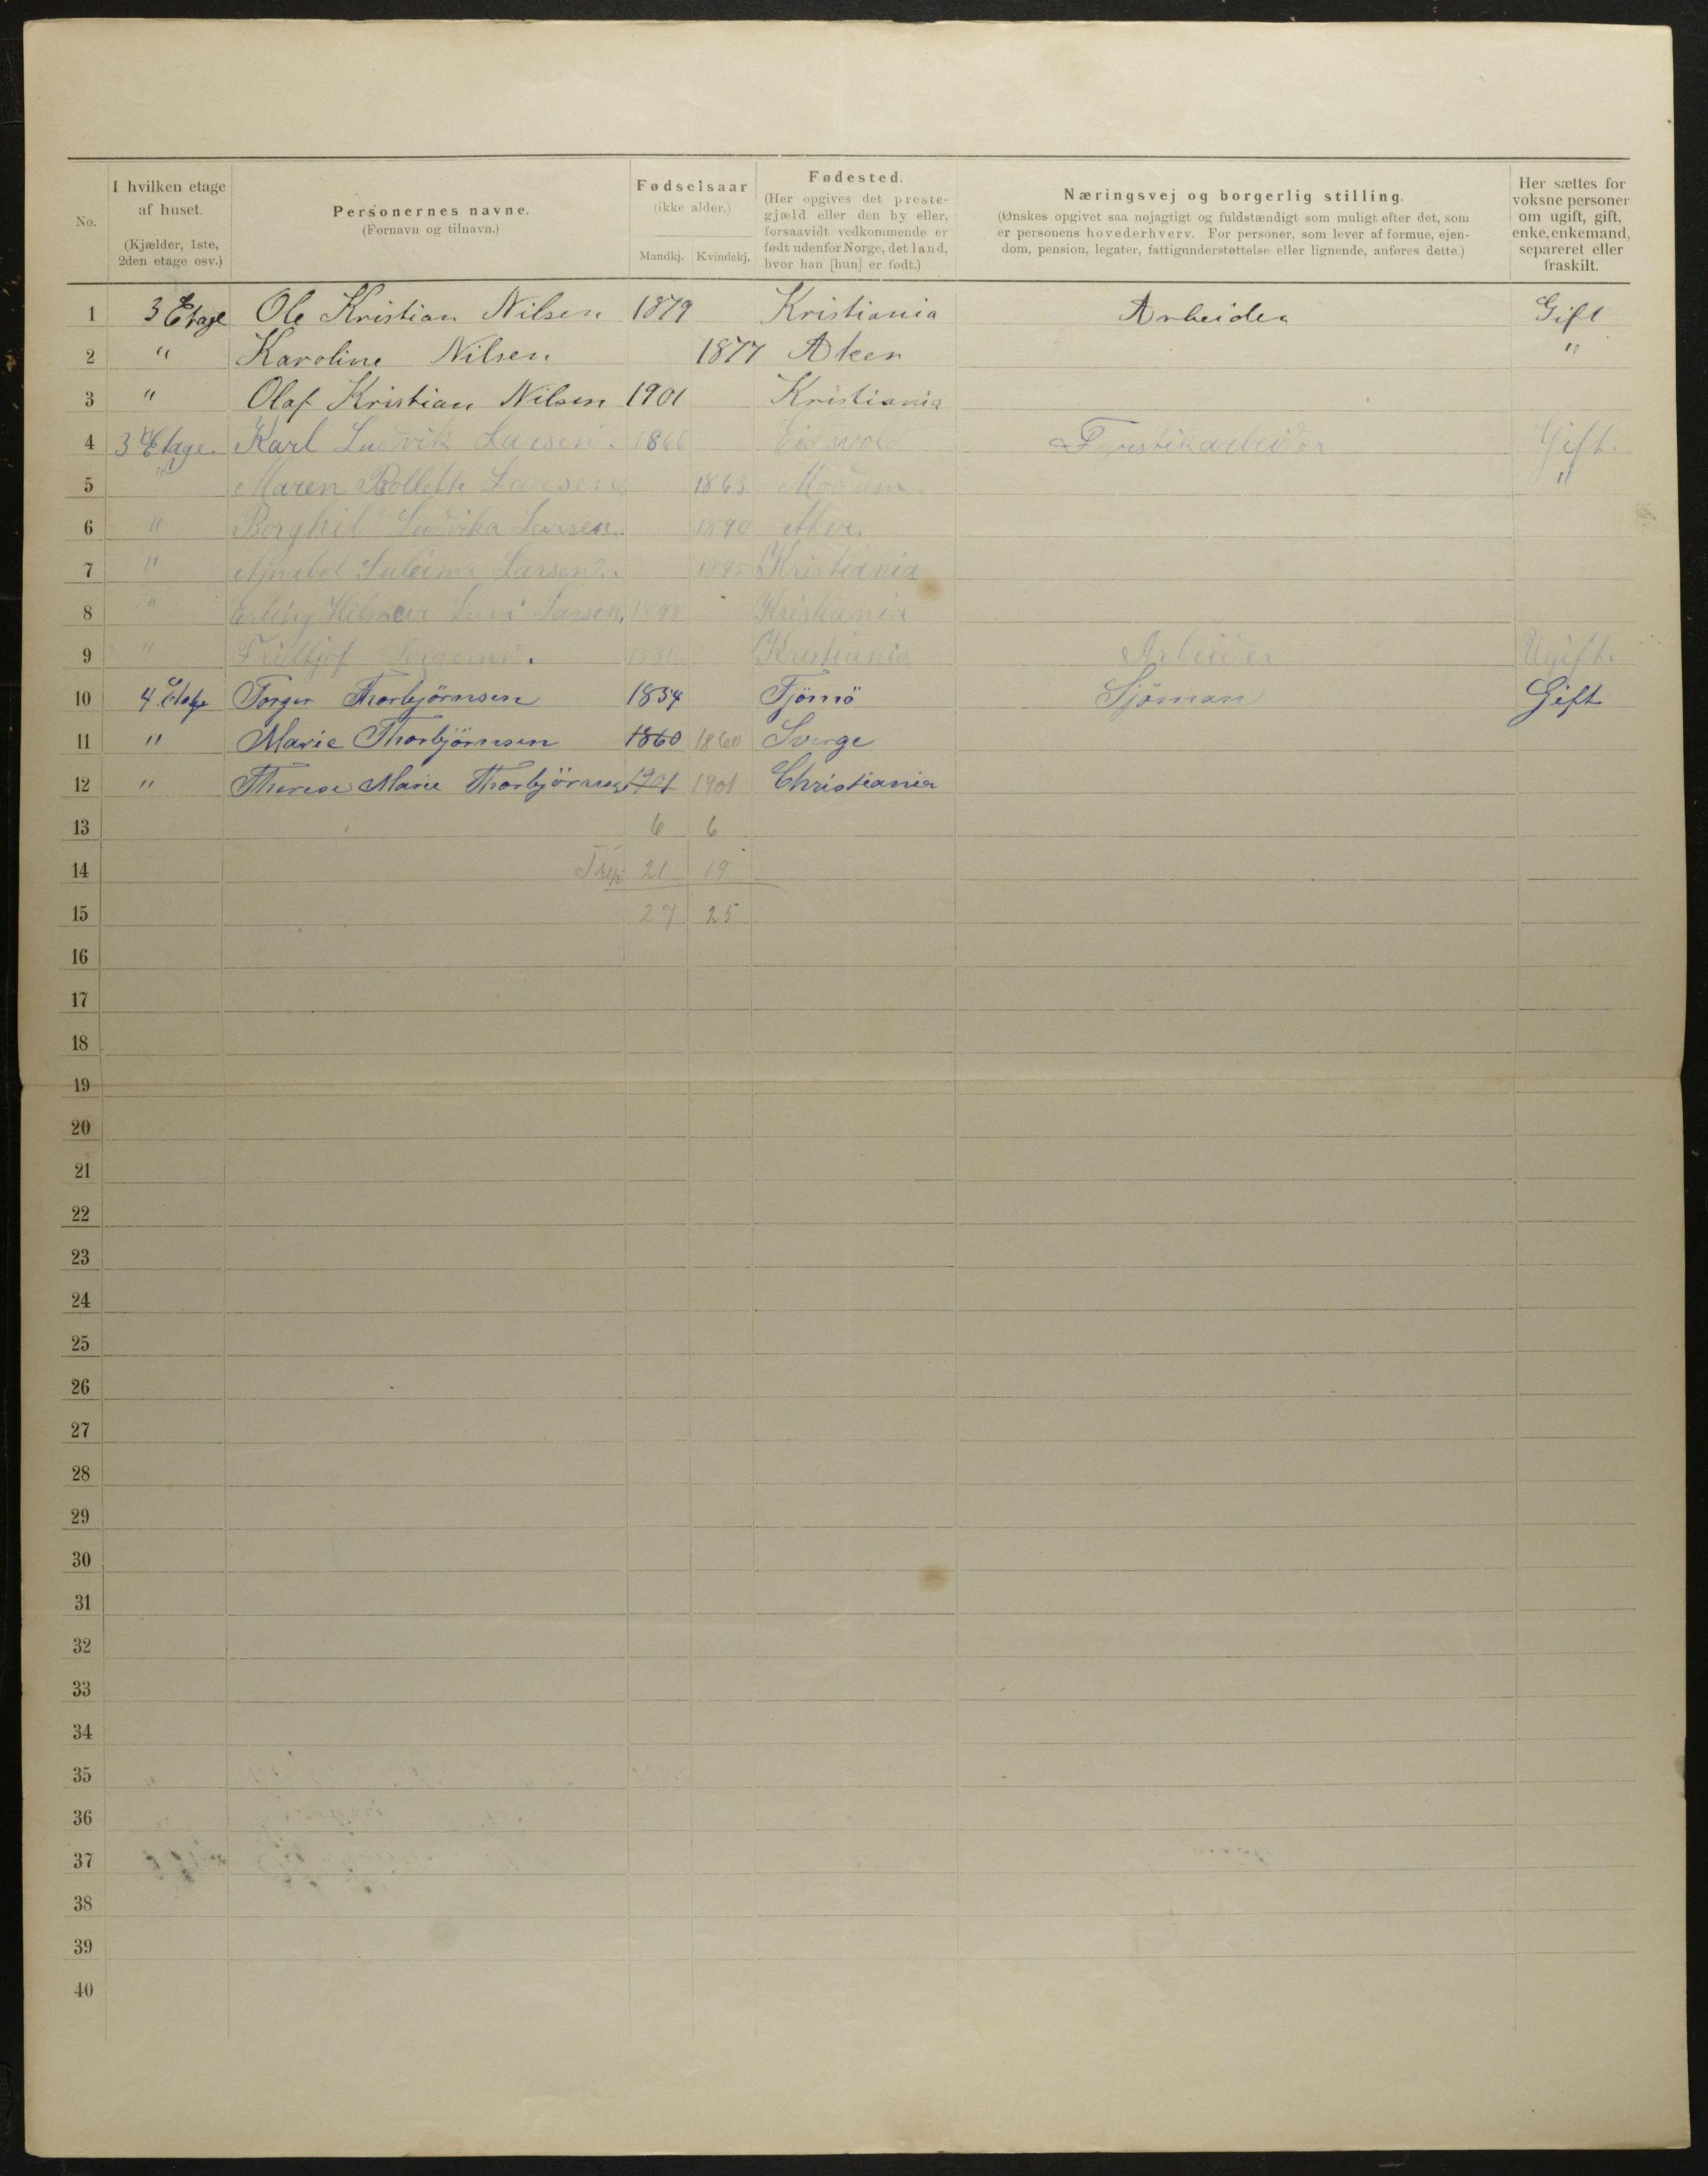 No.
I hvilken etage af huset. (Kjælder, 1ste, 2den etage osv.)
Personernes navne. (Fornavn og tilnavn.)
Fødselsaar (ikke alder.) Mandkj. Kvindekj.
Fødested. (Her opgives det prestegjæld eller den by eller, forsaavidt vedkommende er født udenfor Norge, det land, hvor han [hun] er født.)
Næringsvej og borgerlig stilling. (Ønskes opgivet saa nøjagtigt og fuldstændigt som muligt efter det, som er personens hovederhverv. For personer, som lever af formue, ejendom, pension, legater, fattigunderstøttelse eller lignende, anføres dette.)
Her sættes for voksne personer om ugift, gift, enke, enkemand, separeret eller fraskilt.
1 3 Etage Ole Kristian Nilsen 1879 Kristiania Arbeider Gift
2 " Karoline Nilsen 1877 Aker "
3 " Olaf Kristian Nilsen 1901 Kristiania
4 3 Etage. Karl Ludvik Larsen. 1866 Eidsvol Gift.
5 " Maren Bollette Larsen 1863 Modum. "
6 " Borghil Ludvika Larsen. 1890 Aker.
7 " Larsen. Kristiania
8 " Erling Larsen, 1898 Kristiania
9 " Fridtjof Kristiania Arbeider Ugift.
10 4 Etage Torger Thorbjörnsen 1854 Tjömö Sjöman Gift
11 " Marie Thorbjörnsen 1860 1860 Sverge
12 " Therese Marie Thorbjörnsen 1901 1901 Christiania
13 6 6
14 21 19
15 27 25
16
17
18
19
20
21
22
23
24
25
26
27
28
29
30
31
32
33
34
35
36
37
38
39
40